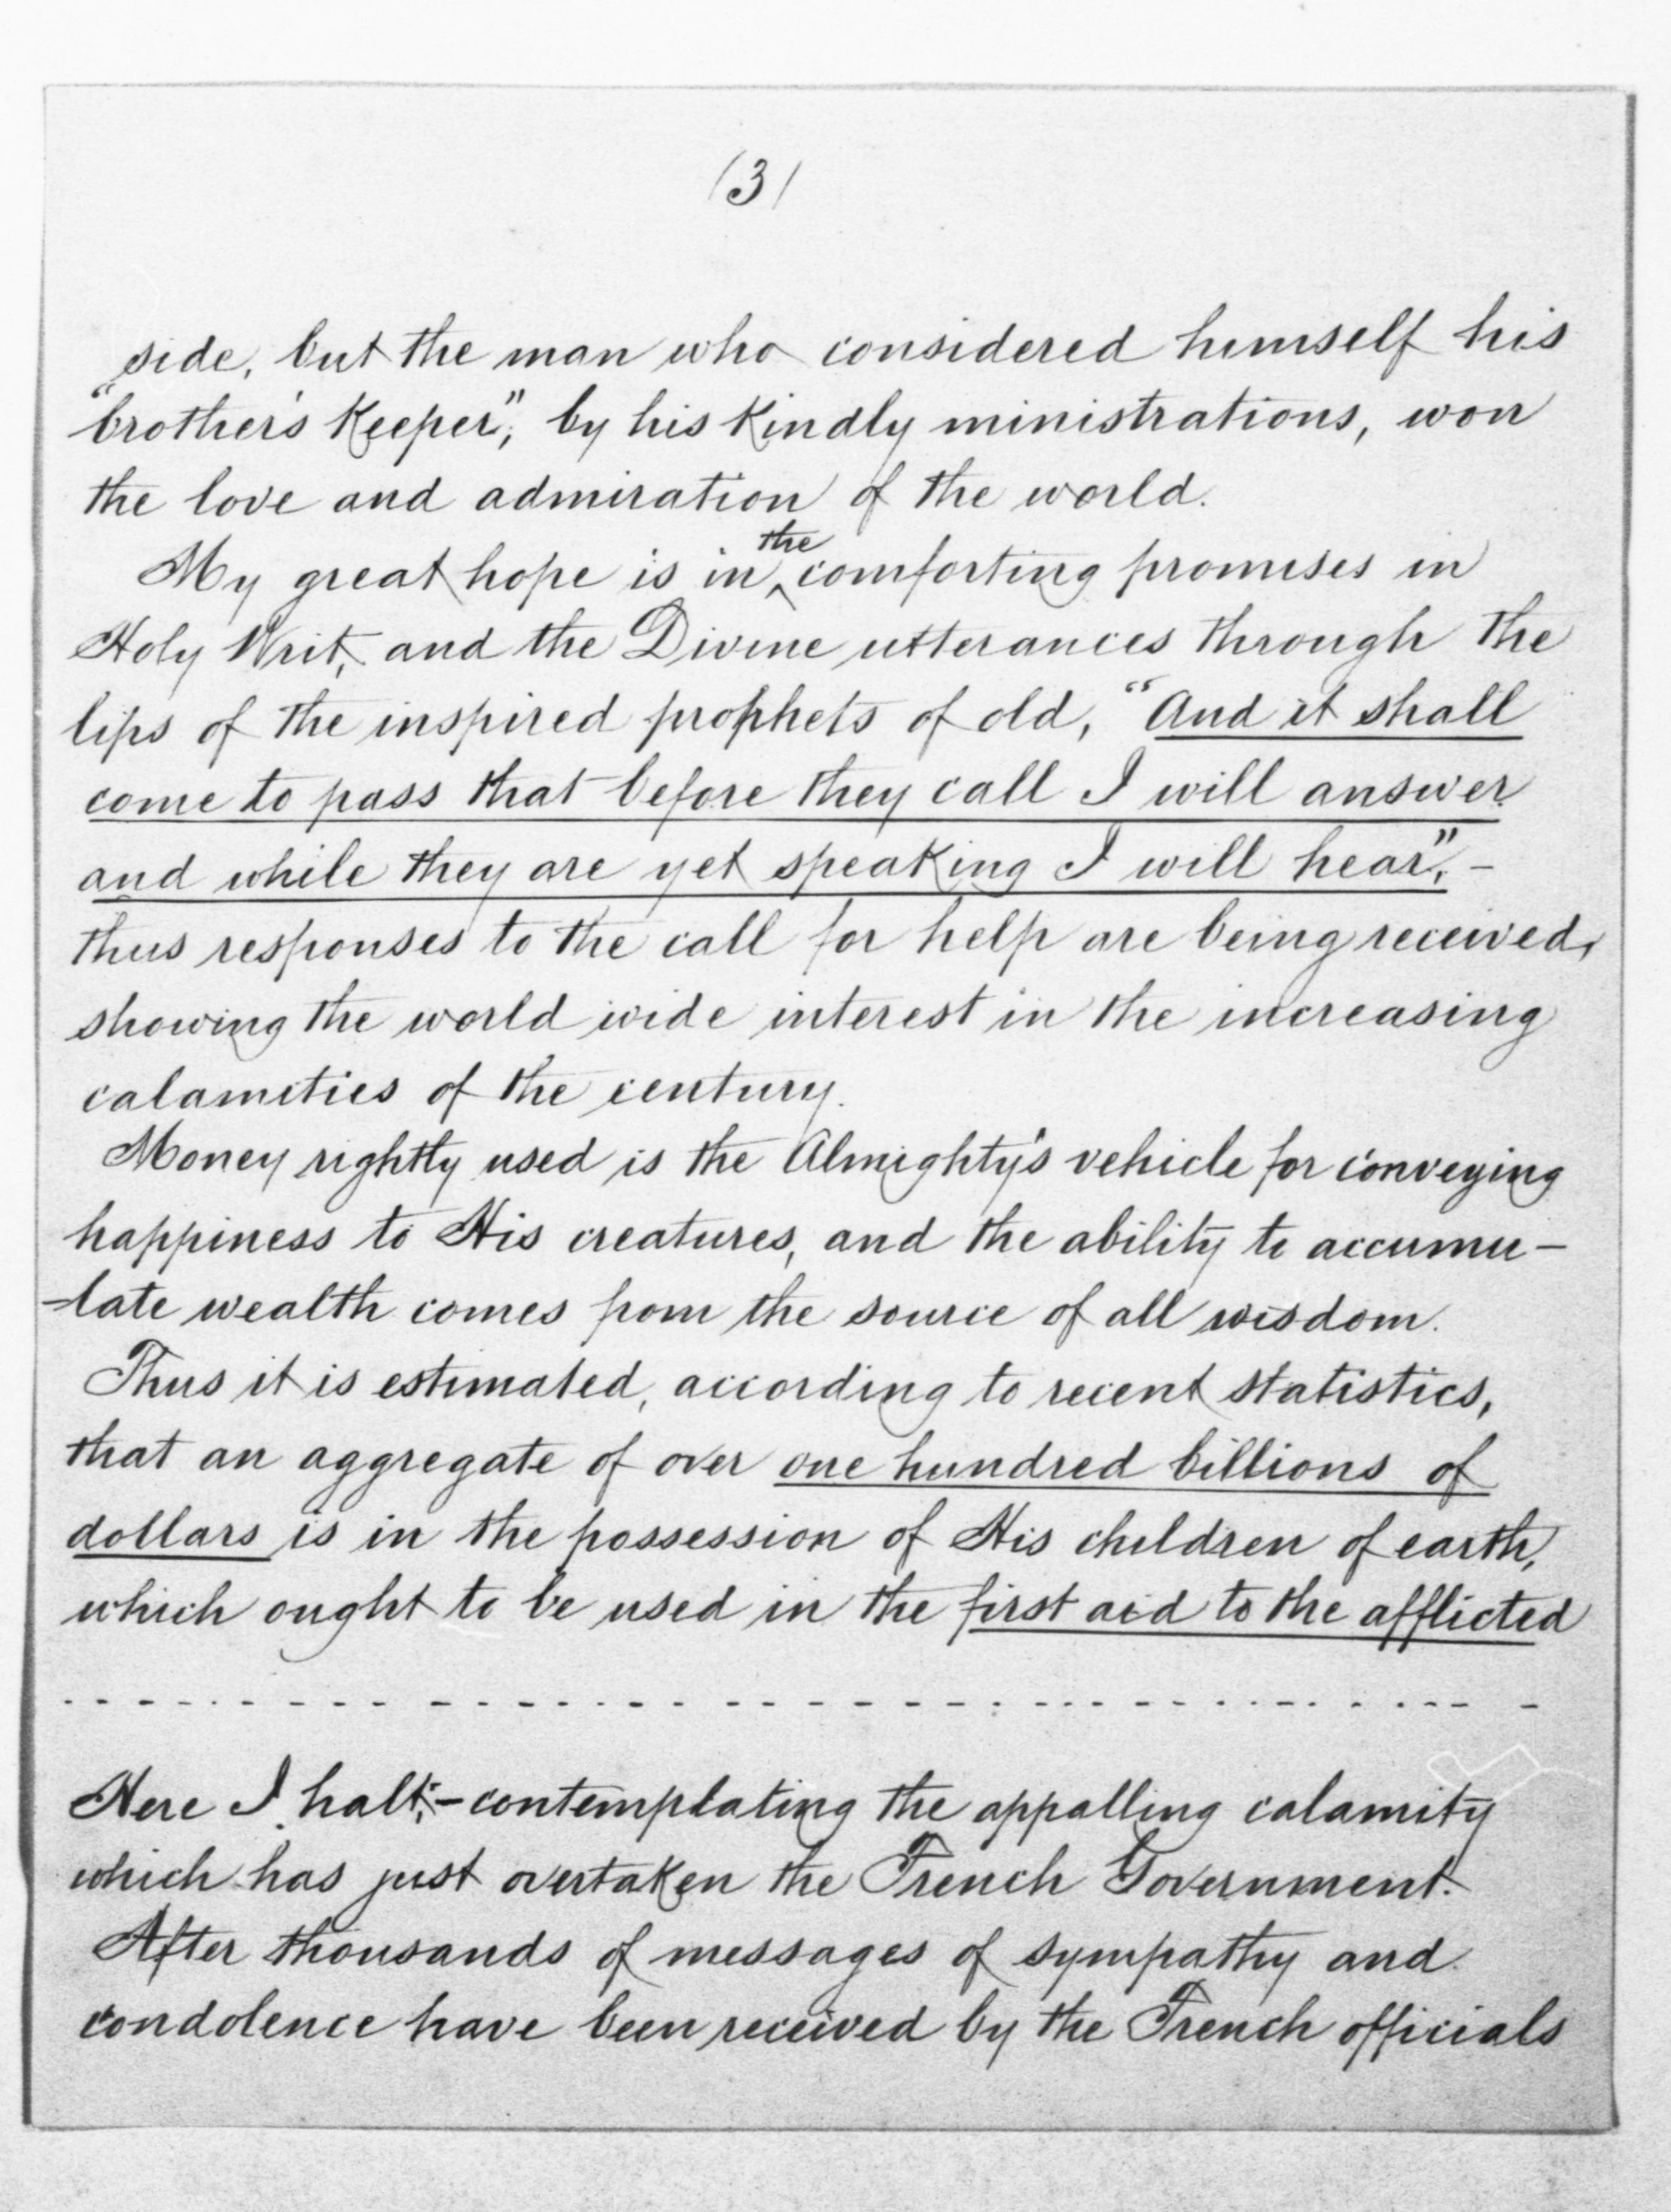 (3)
side, but the man who considered himself his
"brother's Keeper", by his Kindly ministrations, won
the love and admiration of the world.
My great hope is in the comforting promises in
Holy Writ, and the Divine utterances through the
lips of the inspired prophets of old, "And it shall
come to pass that before they call I will answer
and while they are yet speaking I will hear", -
thus responses to the call for help are being received,
showing the world wide interest in the increasing
calamities of the century.
Money rightly used is the Almighty's vehicle for conveying
happiness to His creatures, and the ability to accumu-
-late wealth comes from the source of all wisdom.
Thus it is estimated, according to recent statistics,
that an aggregate of over one hundred billions of
dollars is in the possession of His children of earth,
which ought to be used in the first aid to the afflicted
Here I halt;- contemplating the appalling calamity
which has just overtaken the French Government.
After thousands of messages of sympathy and
condolence have been received by the French officials